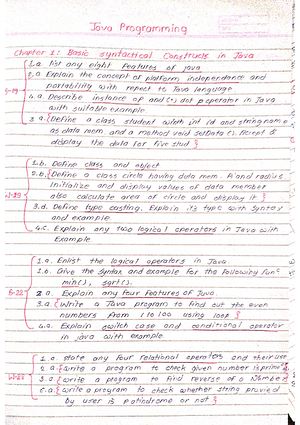 Java Programming
Chapter 1: Basic syntactical Constructs in Java
1.a. list any eight features of java
2.a Explain the concept of platform independance and
portability with respect to Java language
S-19
4.a. Describe instance of and (•) dot operator in Java
with suitable example
3.a {Define a class student with int id and string name
as data mem. and a method void setData(). Accept &
display the data for five stud }
1.b. Define class and object
2.b. {Define a class circle having data mem. Pi and radius.
Initialize and display values of data member
W-19
also calculate area of circle and display it }
3.d. Define type casting. Explain its type with syntax
and example.
4.c. Explain any two logical operators in Java with
Example
1.a. Enlist the logical operators in Java
1.b. Give the syntax and example for the following func
min(), sqrt().
S-22
2.a. Explain any four features of Java.
3.a. {Write a Java program to find out the even
numbers from 1 to 100 using loop }
4.a. Explain switch case and conditional operator
in java with example
1.a state any four relational operators and their use
2.a. {write a program to check given number is prime }
W-22
3.a {write a program to find reverse of a Number }
6.a. {write a program to check whether string provided
by user is palindrome or not }